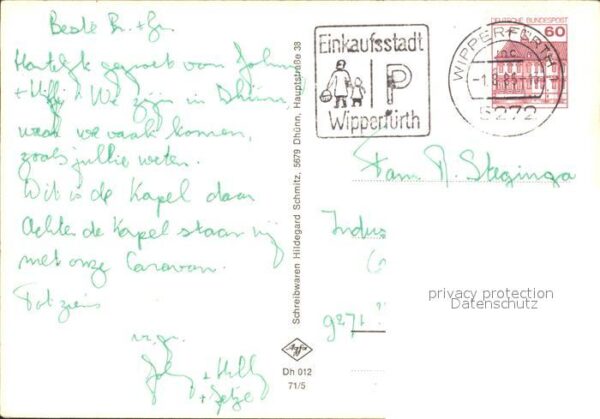 Beste Br. + Zr.
Hartelijk gegroet van Johnny
+ Hilly! We zijn in Dhünn,
waar we vaak komen,
zoals jullie weten.
Dit is de Kapel daar
Achter de Kapel staan wij
met onze Caravan.
Tot ziens
m.gr.
Johnny + Hilly
+ Jetze
Schreibwaren Hildegard Schmitz, 5679 Dhünn, Hauptstraße 38
Agfa
Dh 012
71/5
Einkaufsstadt
P
Wipperfürth
WIPPERFÜRTH
5272
DEUTSCHE BUNDESPOST
60
Fam. R. Steginga
Indus
9271
privacy protection
Datenschutz